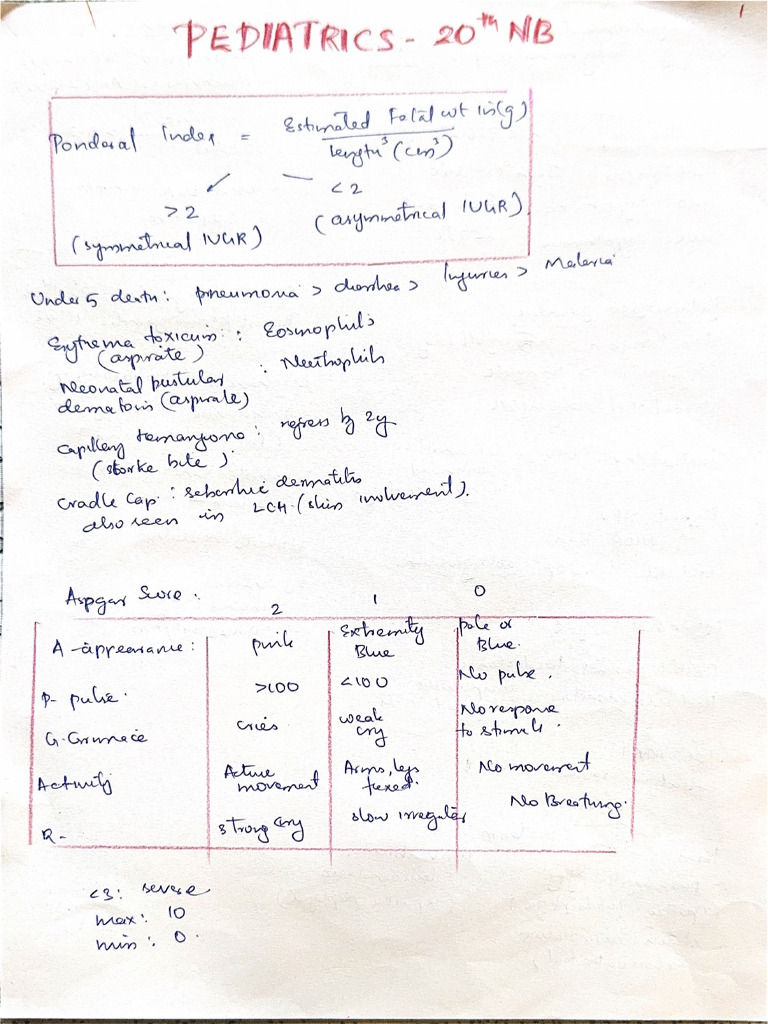 1
PEDIATRICS - 20th NB
Ponderal Index = Estimated Fetal wt in(g)
length³ (cm³)
>2
<2
(symmetrical IUGR)
(asymmetrical IUGR)
Under 5 death: pneumonia > diarrhea > Injuries > Malaria
Erytrema toxicum : Eosinophils
(aspirate)
Neonatal pustular : Neutrophils
dermatosis (aspirate)
Capillary hemangioma : regress by 2y
(storke bite)
Cradle Cap : seborrhic dermatitis
also seen in LCH (skin involvement).
Aspgar Score :
2 1 0
A - apprearance : pink Extremity pale or
Blue Blue.
P- pulse. >100 <100 No pulse.
G. Grimace cries weak No response
cry to stimuli.
Activity Active Arms, legs No movement
movement flexed.
R- strong cry slow irregular No Breathing.
<3: severe
max: 10
min : 0.